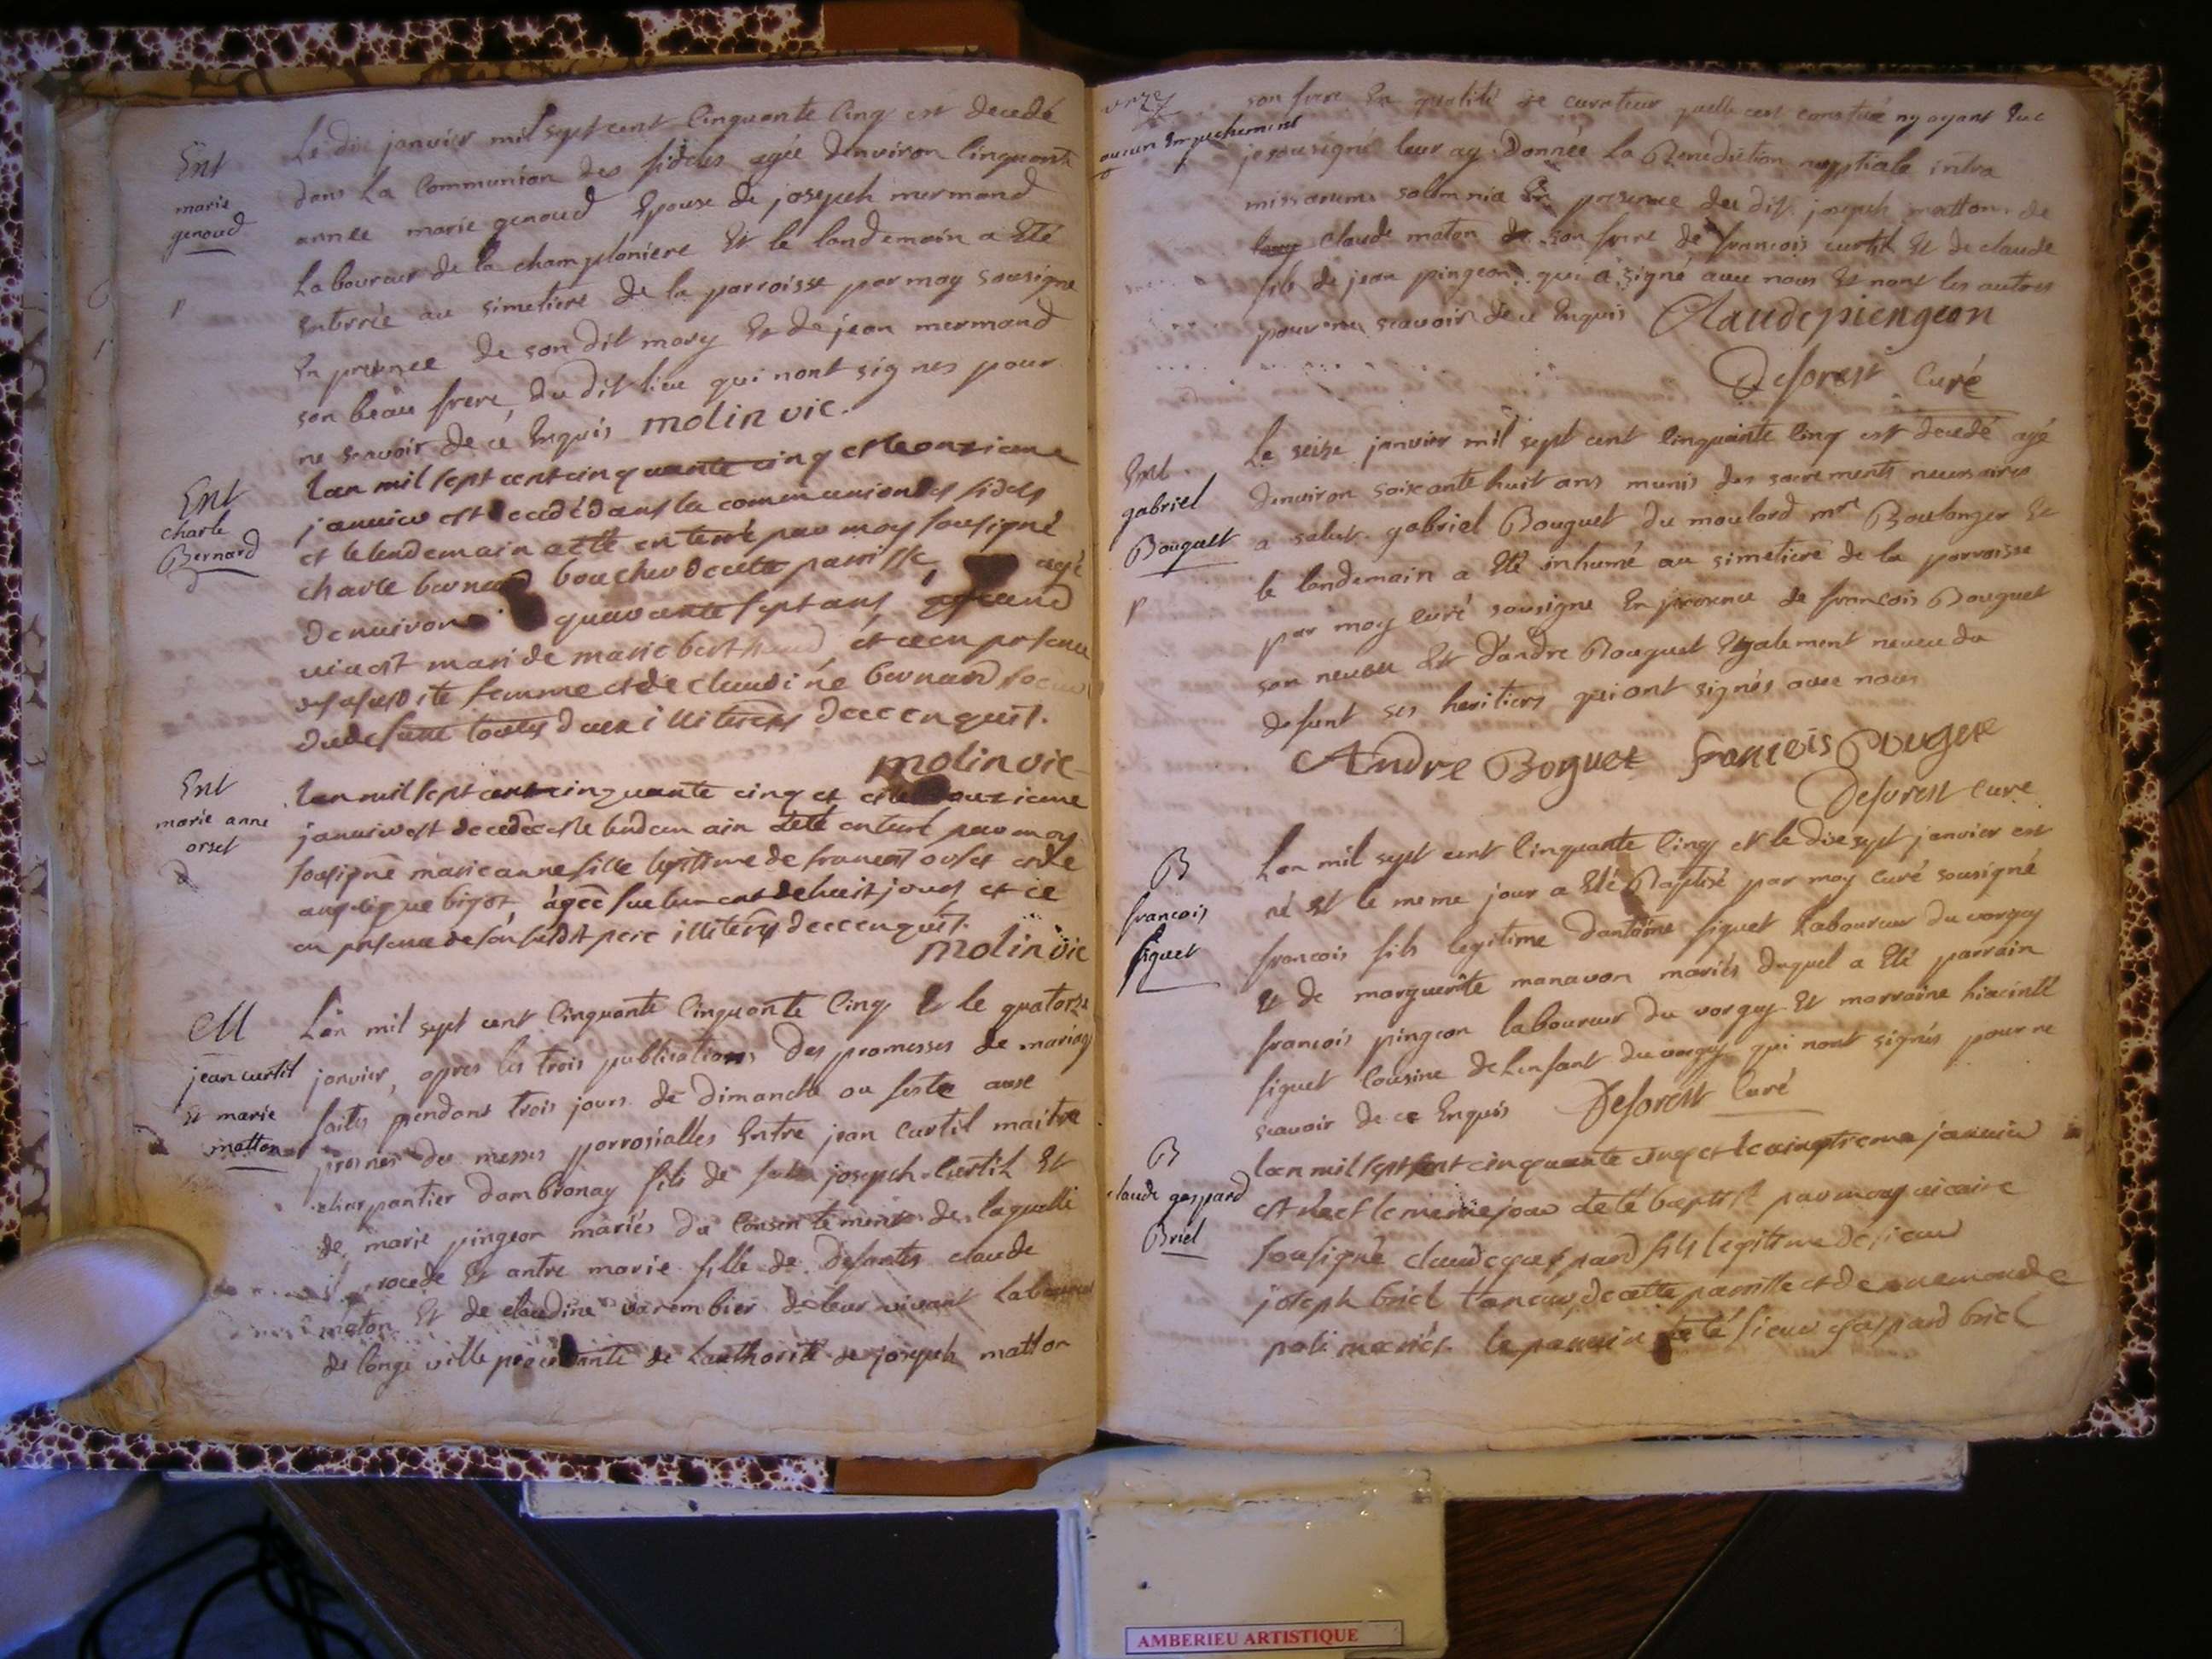 Ent
marie
genoud
Le dix janvier mil sept cent Cinquante Cinq est decedé
dans La Communion des fideles agée denviron Cinquante
année marie genoud Epouse de joseph mermand
Laboureur de la champloniere Et le landemain a Eté
Enterrée au simetiere de la parroisse par moy sousigne
En presence de son dit mary Et de jean mermand
son beau frere, du dit lieu qui nont signes pour
ne scavoir de ce Enquis molin vic.
Ent
charle
Bernard
lan mil sept cent cinquante cinq et le onzieme
janvier est decedé dans la communion des fideles
et le lendemain a etté enterré par moy sousigné
charle bernard boucher de cette parroisse, agé
denviron quarante sept ans,
vivant mari de marie berthaud et ce en presence
de sa susdite femme et de claudine bernard soeur
du defunt toutes deux illiteres de ce enquist.
molin vic
Ent
marie anne
orset
lan mil sept cent cinquante cinq et et le douzieme
janvier est decedée et le lendemain a été enterré par moy
sousigné marie anne fille legitime de francois orset et de
angelique bigot, agée seulement de huit jours et ce
en presence de son susdit pere illiteré de ce enquist.
molin vic
M
jean curtil
Et marie
matton
Lan mil sept cent Cinquante Cinquante Cinq Et le quatorze
janvier, apres les trois publications des promesses de mariage
faites pendant trois jours de dimanche ou feste aux
prosnes des messes parrosialles Entre jean Curtil maitre
charpantier dambronay fils de joseph Curtil Et
de marie pingeon mariés du Consentement de laquelle
il procede Et antre marie fille de defunts claude
maton Et de claudine varembier de leur vivant Laboureur
de longe ville procedante de Lauthorité de joseph matton
son frere En qualité de curateur quelle cest constitué ny ayant Eue
aucun Empechement
je sousigné leur ay donnée La Benediction nuptiale intra
missarum solemnia En presence du dit joseph matton de
claude maton son frere de francois curtil Et de claude
fils de jean pingeon qui a signé avec nous Et nont les autres
pour ne scavoir de ce Enquis Claude piengeon
Deforest Curé
Ent
gabriel
Bouguet
Le seize janvier mil sept cent Cinquante Cinq est decedé agé
denviron soixante huit ans munis des sacrements necessaires
a salut gabriel Bouguet du moulard mre Boulanger Et
le landemain a Eté inhumé au simetiere de la parroisse
par moy curé sousigne En presence de francois Bouguet
son neveu Et dandre Bouguet Egalement neveu du
defunt ses heritiers qui ont signés avec nous
Andre Boguet francois Bouguet
Deforest Cure
B
francois
figuet
Lan mil sept cent Cinquante Cinq et le dix sept janvier est
né Et le meme jour a Eté Baptisé par moy Curé sousigné
francois fils legitime dantoine figuet Laboureur du vorgey
Et de marguerite manavon mariés duquel a Eté parrain
francois pingeon laboureur du vorgey Et marraine hiacinte
figuet Cousine de Lenfant du vorgey qui nont signés pour ne
scavoir de ce Enquis Deforest Curé
B
claude gaspard
Briel
lan mil sept cent cinquante cinq et le vingtieme janvier
est né et le meme jour a été baptisé par moy vicaire
sousigné claude gaspard fils legitime de sieur
joseph briel taneur de cette parroisse et de
mariés le parrain a été sieur gaspard briel
AMBERIEU ARTISTIQUE